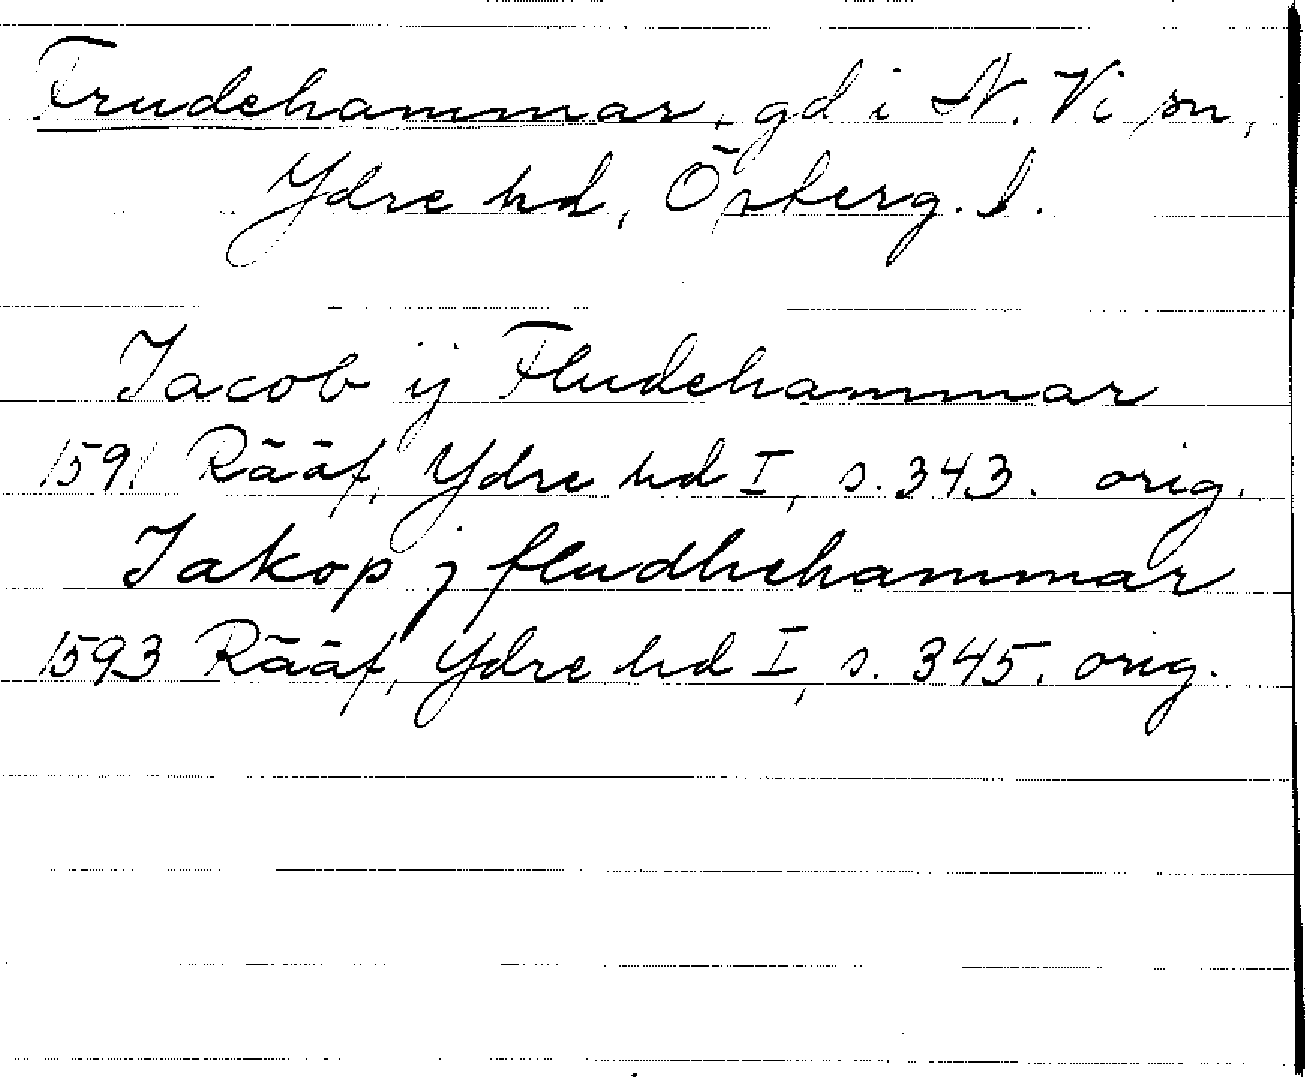 Frudehammar, gd i N. Vi sn,
Ydre hd, Österg. l.
Jacob ij Fludehammar
1591 Rääf, Ydre hd I, s. 343. orig.
Jakop j fludhehammar
1593 Rääf, Ydre hd I, s. 345. orig.